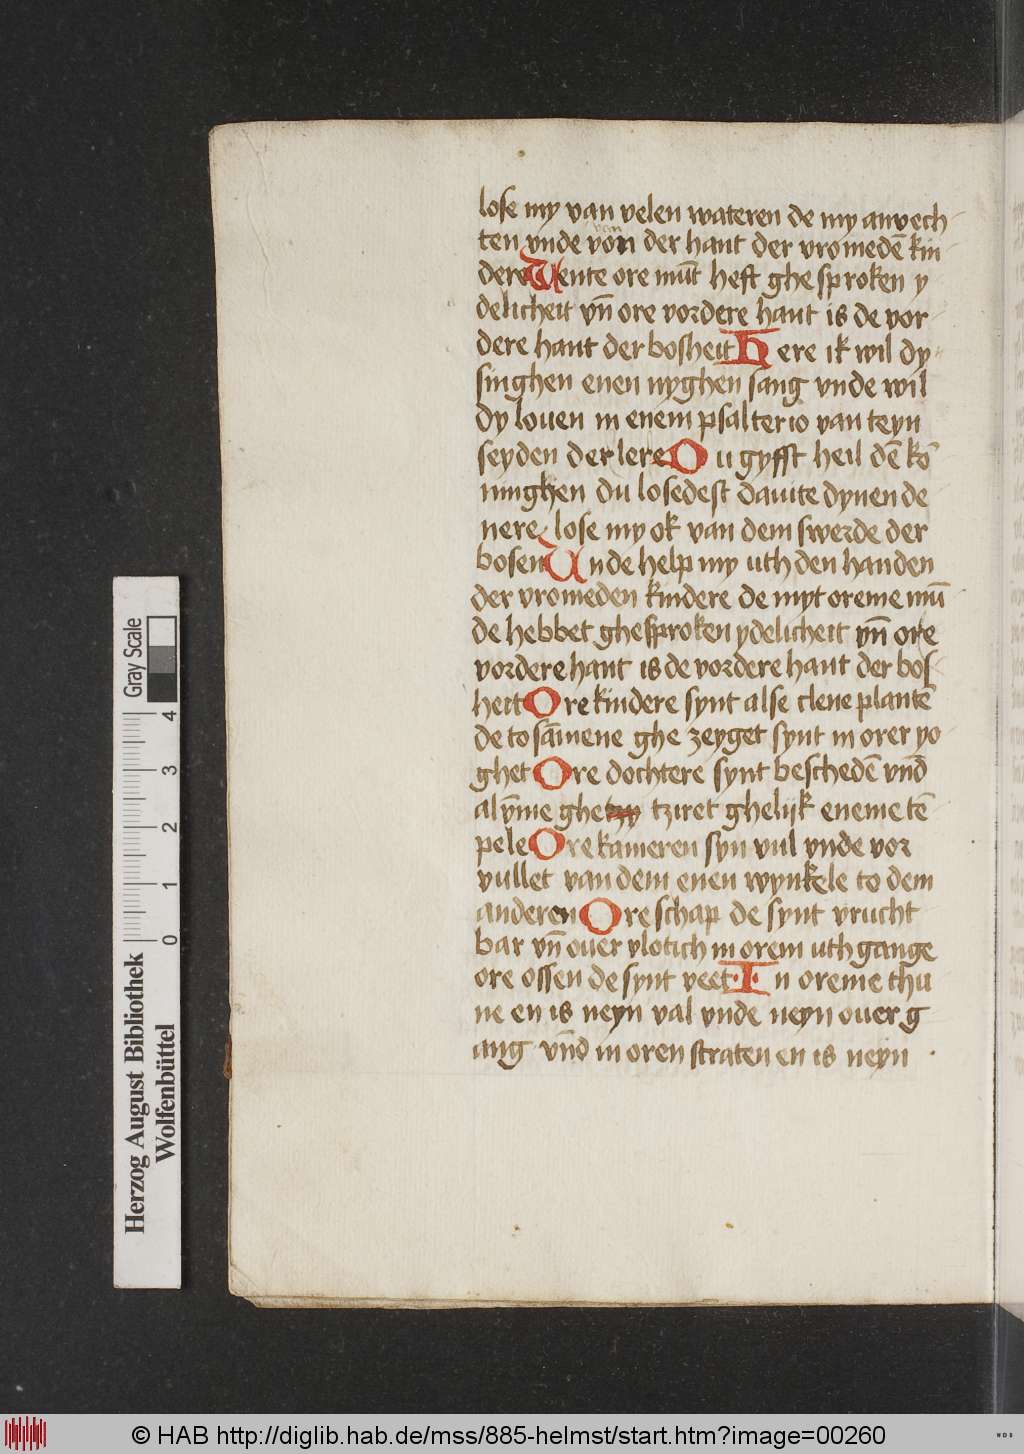 lose my van velen wateren de my anvech
ten vnde von der hant der vromedē kin
dere Wente ore mūt heft ghe sproken y
delicheit vn̄ ore vordere hant is de vor
dere hant der bosheit Here ik wil dy
singhen enen nyghen sang vnde wil
dy louen in enem psalterio van teyn
seyden der lere Du gyfft heil dē ko
ninghen du losedest dauite dynen de
nere lose my ok van dem swerde der
bosen Vnde help my uth den handen
der vromeden kindere de myt oreme mū
de hebbet ghesproken ydelicheit vn̄ ore
vordere hant is de vordere hant der bos
heit Ore kindere synt alse clene plantē
de to sāmene ghe zeyget synt in orer yo
ghet Ore dochtere synt beschedē vn̄d
al v̄me ghe tziret ghelijk eneme tē
pele Ore kameren syn vul vnde vor
vullet van dem enen wynkele to dem
anderen Ore schap de synt vrucht
bar vn̄ ouer vlotich in orem uth gange
ore ossen de synt veet In oreme thu
ne en is neyn val vnde neyn ouer g
ang vn̄d in oren straten en is neyn
Gray Scale
0 1 2 3 4
Herzog August Bibliothek
Wolfenbüttel
© HAB http://diglib.hab.de/mss/885-helmst/start.htm?image=00260